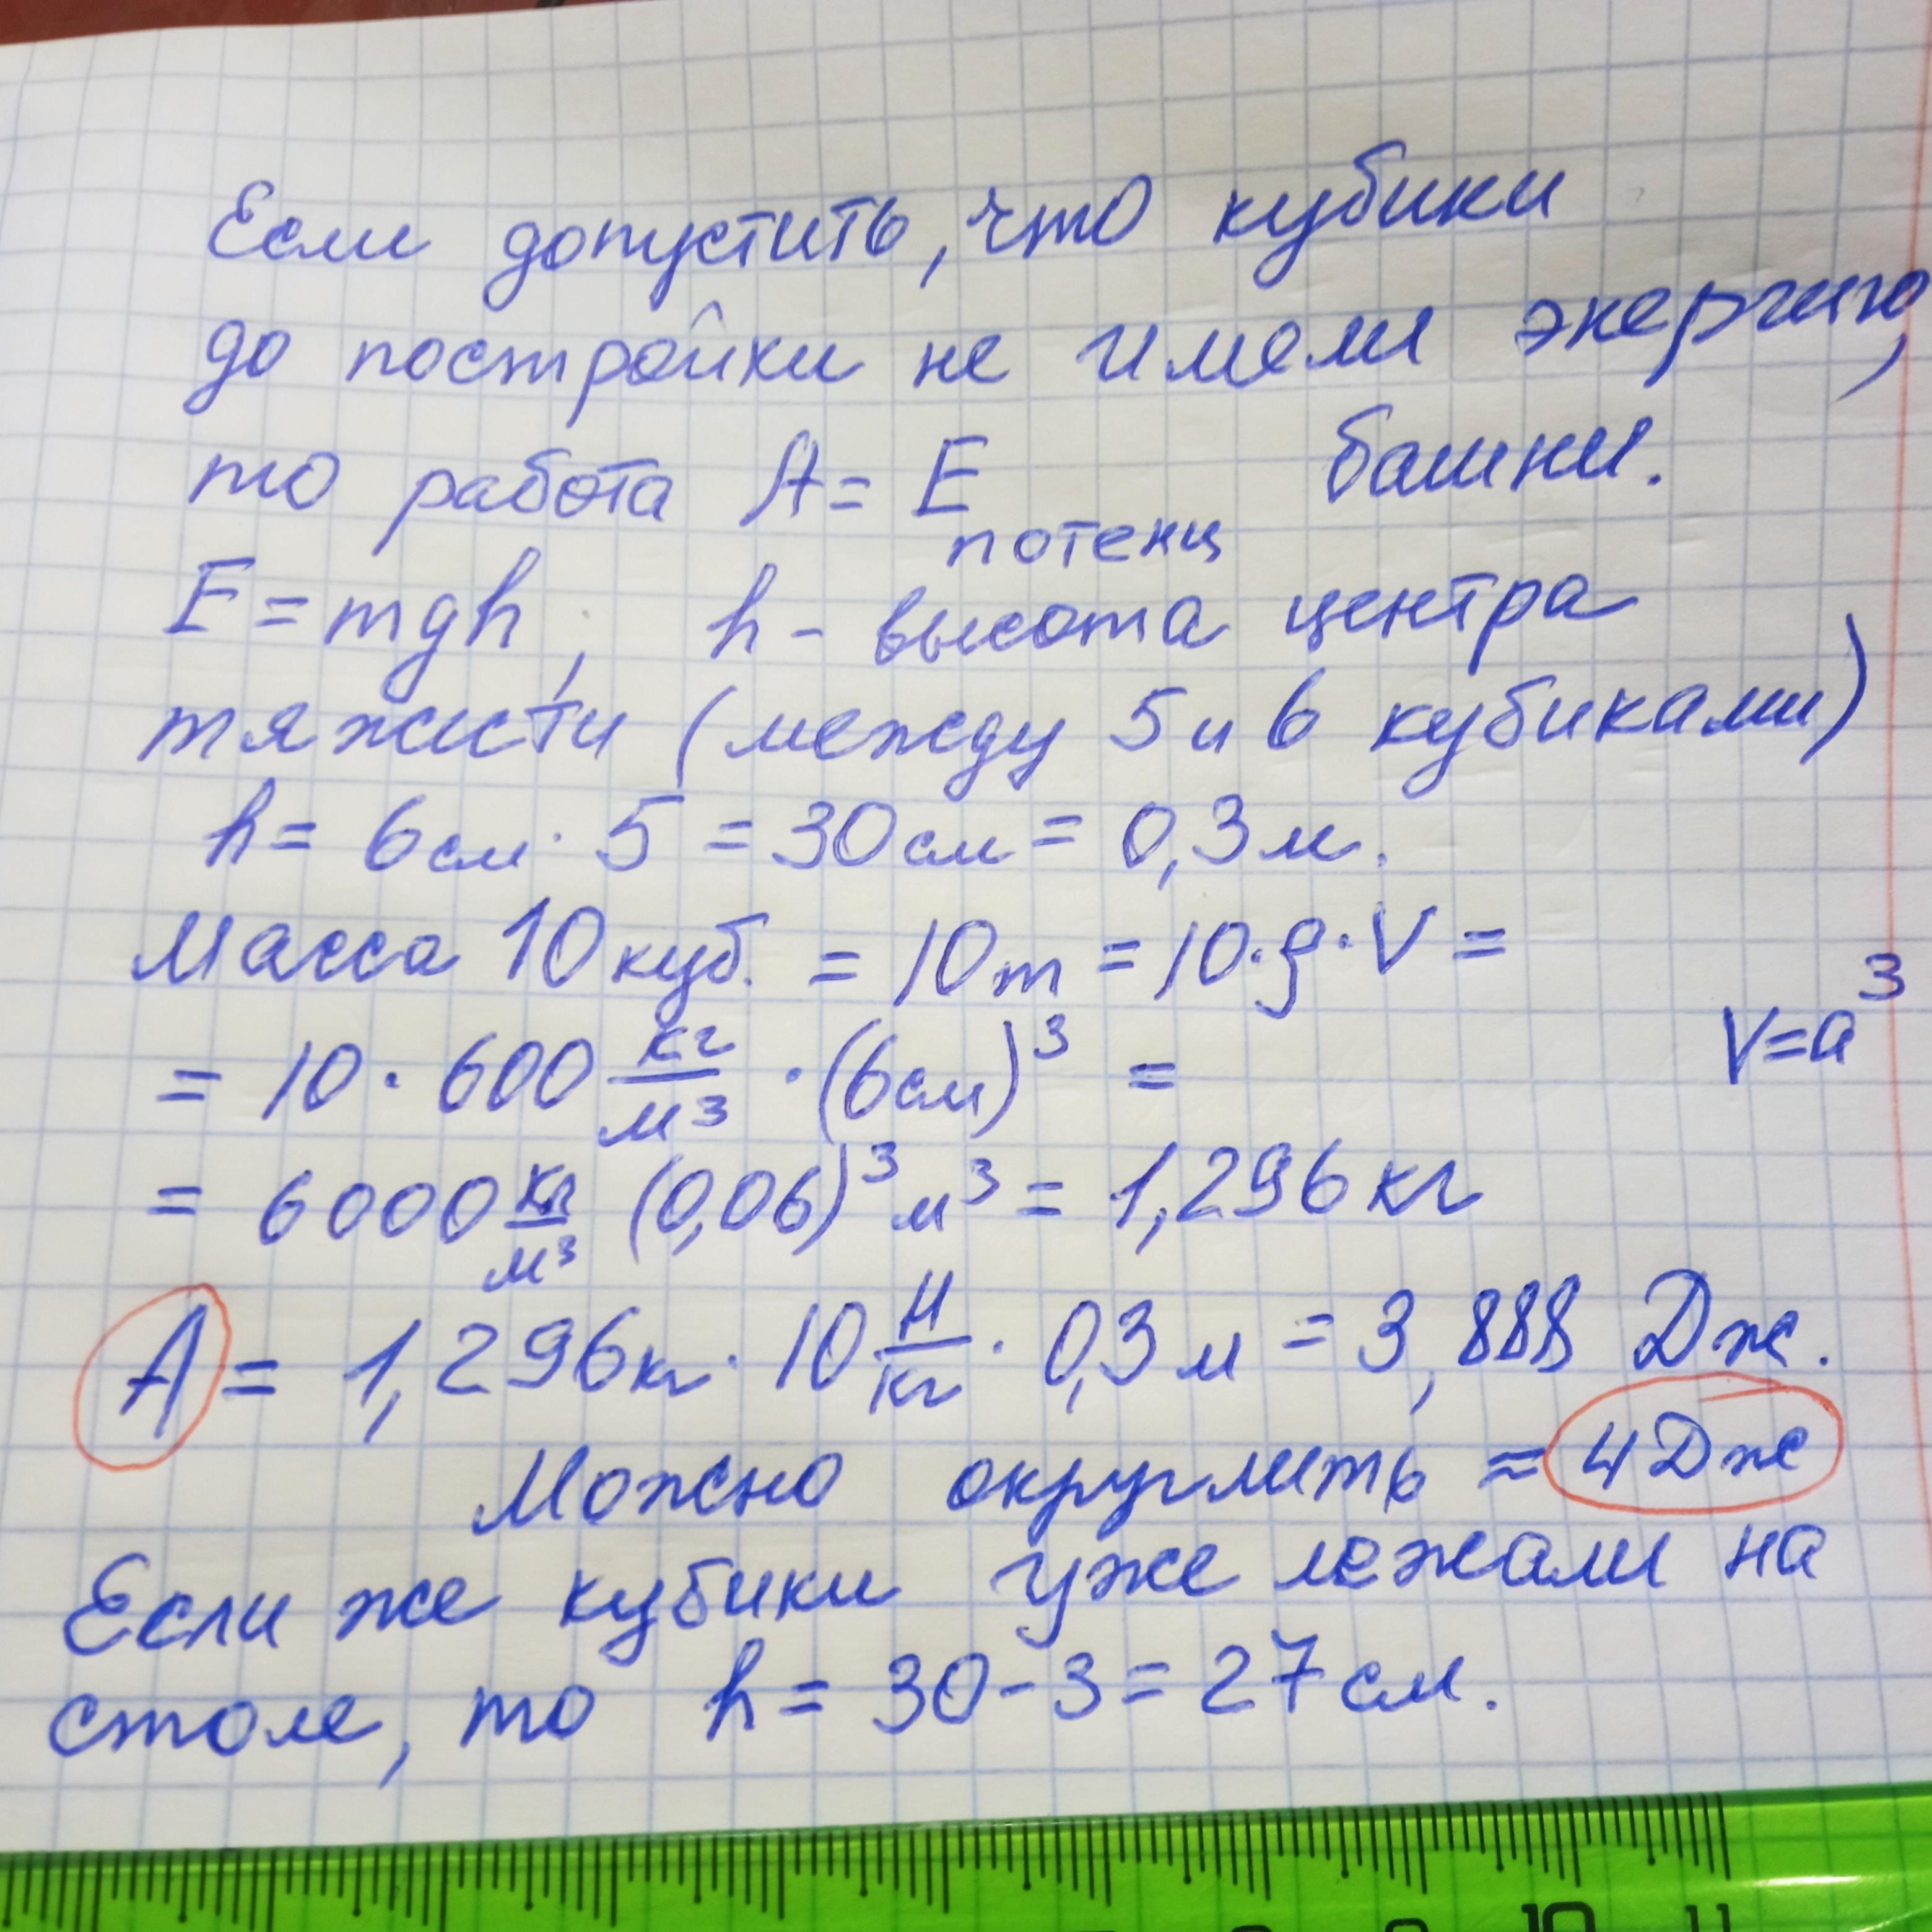 Если допустить, что кубики
до постройки не имели энергию,
то работа A = E потенц башни.
E = mgh, h - высота центра
тяжести (между 5 и 6 кубиками)
h = 6 см · 5 = 30 см = 0,3 м.
Масса 10 куб. = 10 m = 10 · ρ · V =
V = a³
= 10 · 600 кг/м³ · (6 см)³ =
= 6000 кг/м³ (0,06)³ м³ = 1,296 кг
A = 1,296 кг · 10 Н/кг · 0,3 м = 3,888 Дж.
Можно округлить ≈ 4 Дж
Если же кубики уже лежали на
столе, то h = 30 - 3 = 27 см.
10 11